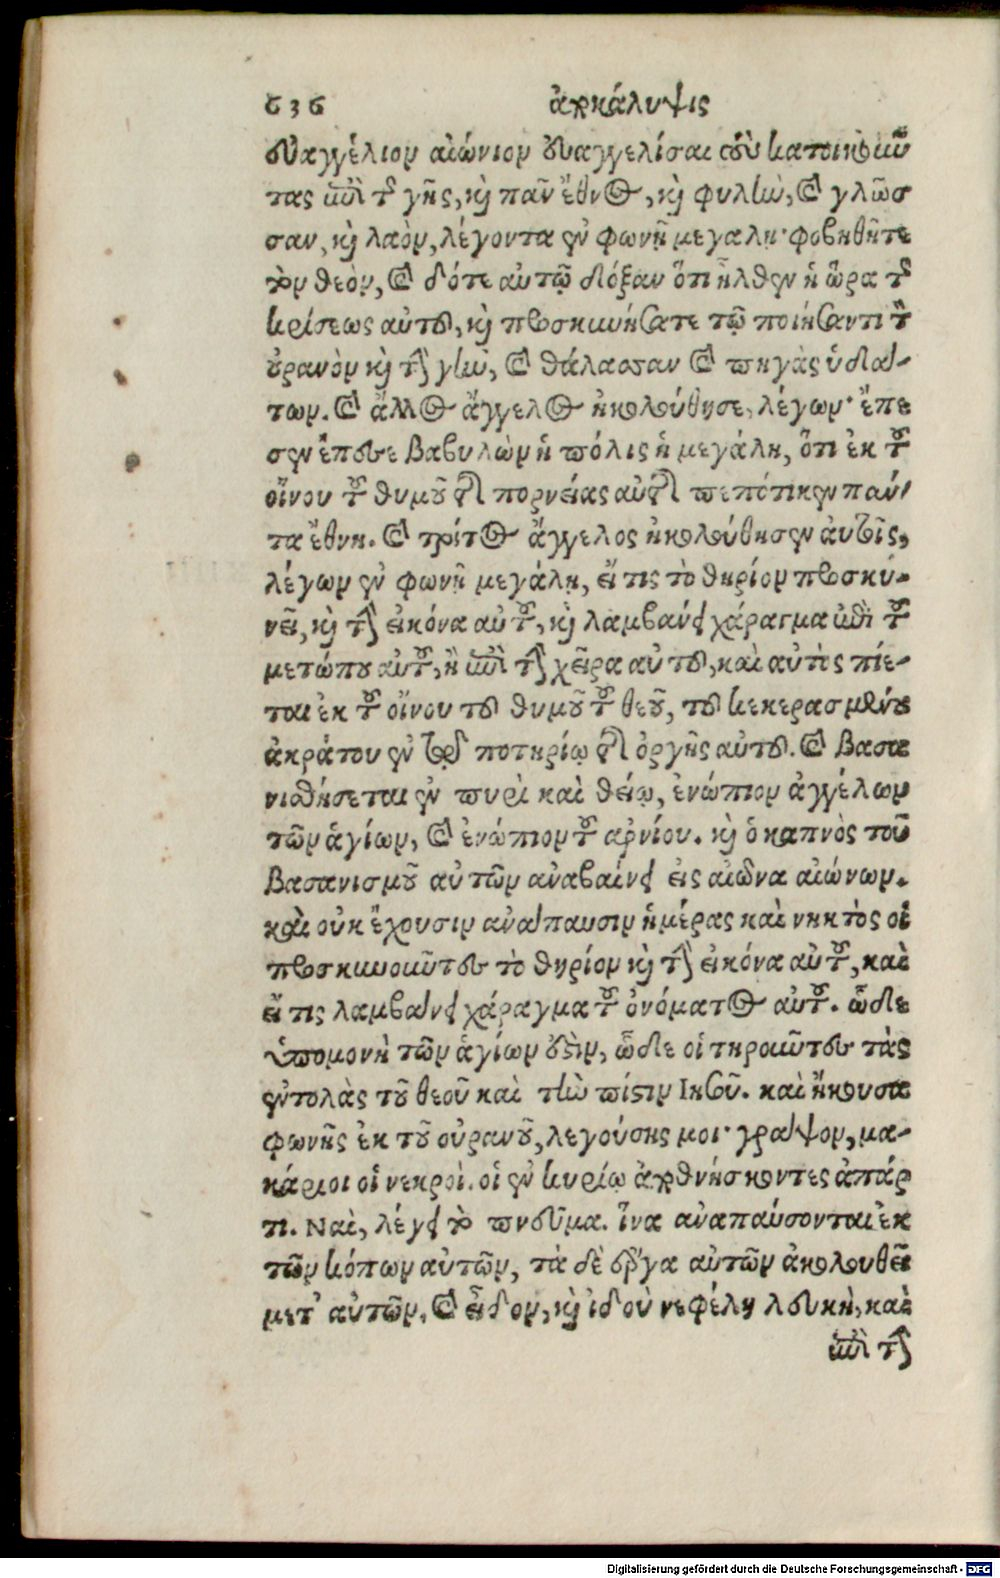 636 ἀποκάλυψις
εὐαγγέλιον αἰώνιον εὐαγγελίσαι τοὺς κατοικοῦν
τας ἐπὶ τῆς γῆς, καὶ πᾶν ἔθνος, καὶ φυλὴν, καὶ γλῶσ
σαν, καὶ λαὸν, λέγοντα ἐν φωνῇ μεγαλῃ· φοβηθῆτε
τὸν θεὸν, καὶ δότε αὐτῷ δόξαν ὅτι ἦλθεν ἡ ὥρα τῆς
κρίσεως αὐτοῦ, καὶ προσκυνήσατε τῷ ποιήσαντι τὸν
οὐρανὸν καὶ τὴν γῆν, καὶ θάλασσαν καὶ πηγὰς ὑδά-
των. καὶ ἄλλος ἄγγελος ἠκολούθησε, λέγων· ἔπε
σεν ἔπεσε Βαβυλὼν ἡ πόλις ἡ μεγάλη, ὅτι ἐκ τοῦ
οἴνου τοῦ θυμοῦ τῆς πορνείας αὐτῆς πεπότικεν πάν-
τα ἔθνη. καὶ τρίτος ἄγγελος ἠκολούθησεν αὐτοῖς,
λέγων ἐν φωνῇ μεγάλῃ, εἴ τις τὸ θηρίον προσκυ-
νεῖ, καὶ τὴν εἰκόνα αὐτοῦ, καὶ λαμβάνει χάραγμα ἐπὶ τοῦ
μετώπου αὐτοῦ, ἢ ἐπὶ τὴν χεῖρα αὐτοῦ, καὶ αὐτὸς πίε-
ται ἐκ τοῦ οἴνου τοῦ θυμοῦ τοῦ θεοῦ, τοῦ κεκερασμένου
ἀκράτου ἐν τῷ ποτηρίῳ τῆς ὀργῆς αὐτοῦ. καὶ βασα
νισθήσεται ἐν πυρὶ καὶ θείῳ, ἐνώπιον ἀγγέλων
τῶν ἁγίων, καὶ ἐνώπιον τοῦ αρνίου. καὶ ὁ καπνὸς τοῦ
βασανισμοῦ αὐτῶν αναβαίνει εἰς αἰῶνα αἰώνων.
καὶ οὐκ ἔχουσιν ανάπαυσιν ἡμέρας καὶ νηκτὸς οἱ
προσκυνοῦντες τὸ θηρίον καὶ τὴν εἰκόνα αὐτοῦ, καὶ
εἴ τις λαμβάνει χάραγμα τοῦ ὀνόματος αὐτοῦ. ὧδε
ὑπομονὴ τῶν ἁγίων ἐστὶν, ὧδε οἱ τηροῦντες τὰς
ἐντολὰς τοῦ θεοῦ καὶ τὴν πίστιν Ἰησοῦ. καὶ ἤκουσα
φωνῆς ἐκ τοῦ οὐρανοῦ, λεγούσης μοι· γράψον, μα-
κάριοι οἱ νεκροὶ. οἱ ἐν κυρίῳ ἀποθνήσκοντες ἀπάρ
τι. Ναὶ, λέγει τὸ πνεῦμα. ἵνα αναπαύσονται ἐκ
τῶν κόπων αὐτῶν, τὰ δὲ ἔργα αὐτῶν ἀκολουθεῖ
μετ' αὐτῶν. καὶ εἶδον, καὶ ἰδοὺ νεφέλη λευκὴ, καὶ
ἐπὶ τὴν
Digitalisierung gefördert durch die Deutsche Forschungsgemeinschaft - DFG